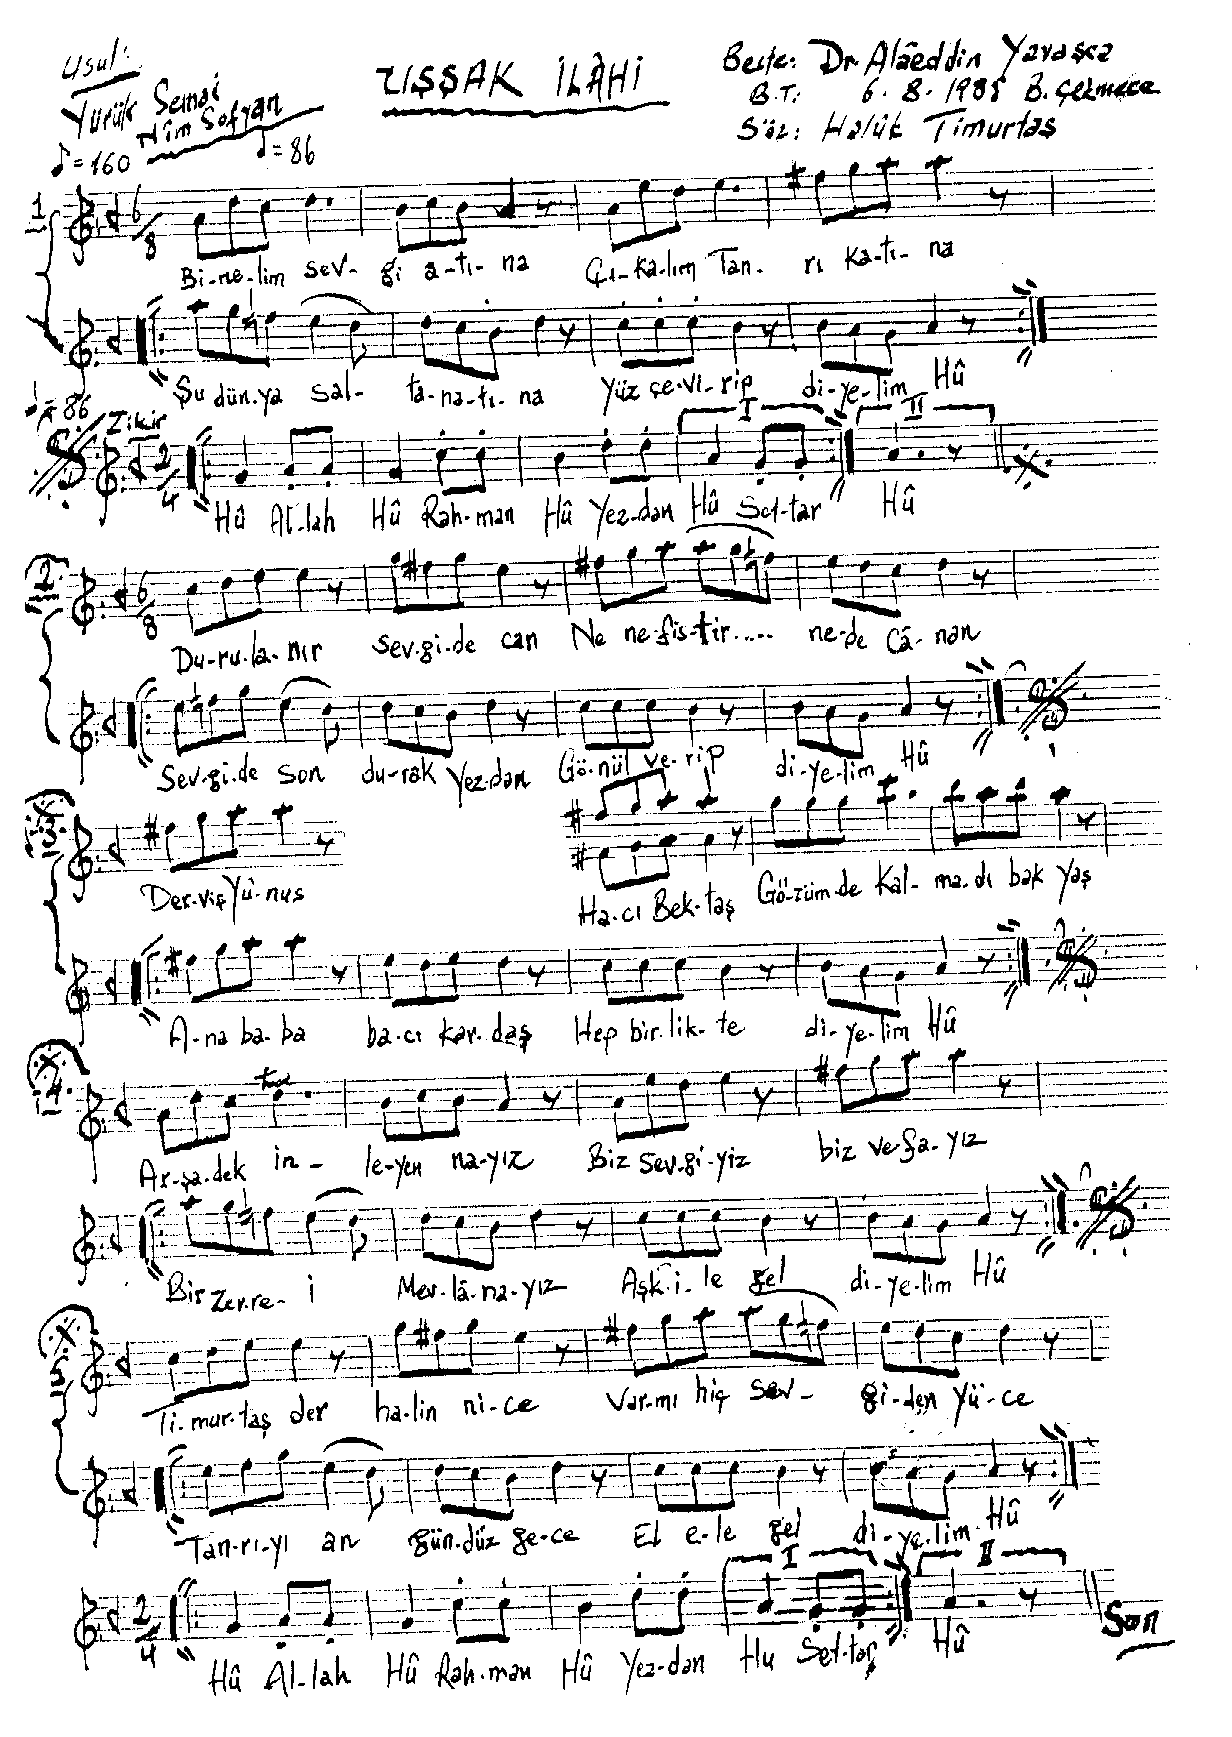 Usul:
Yürük Semai
Nim Sofyan
♪=160 ♩=86
UŞŞAK İLÂHİ
Beste: Dr Alâeddin Yavaşca
B.T: 6.8.1985 B.Çekmece
Söz: Halûk Timurtaş
1
6/8
Bi-ne-lim sev-gi a-tı-na Çı-ka-lım Tan-rı ka-tı-na
Şu dün-ya sal-ta-na-tı-na yüz çe-vi-rip di-ye-lim Hû
♩=86 Zikir I II
2/4
Hû Al-lah Hû Rah-man Hû Yez-dan Hû Set-tar Hû
2.
6/8
Du-ru-la-nır sev-gi-de can Ne ne-fis-tir..... ne-de Cã-nan
Sev-gi-de son du-rak Yez-dan Gö-nül ve-rip di-ye-lim Hû
3.
Der-viş Yû-nus Ha-cı Bek-taş Gö-züm-de Kal-ma-dı bak yaş
A-na ba-ba ba-cı kar-daş Hep bir-lik-te di-ye-lim Hû
4.
Ar-şa-dek in-le-yen na-yız Biz sev-gi-yiz biz ve-fa-yız
Bir zer-re-i Mev-lâ-na-yız Aşk-i-le gel di-ye-lim Hû
5
Ti-mur-taş der ha-lin ni-ce Var-mı hiç sev-gi-den yü-ce
Tan-rı-yı an gün-düz ge-ce El e-le gel di-ye-lim Hû
I II
2/4
Hû Al-lah Hû Rah-man Hû Yez-dan Hu Set-tar Hû
Son